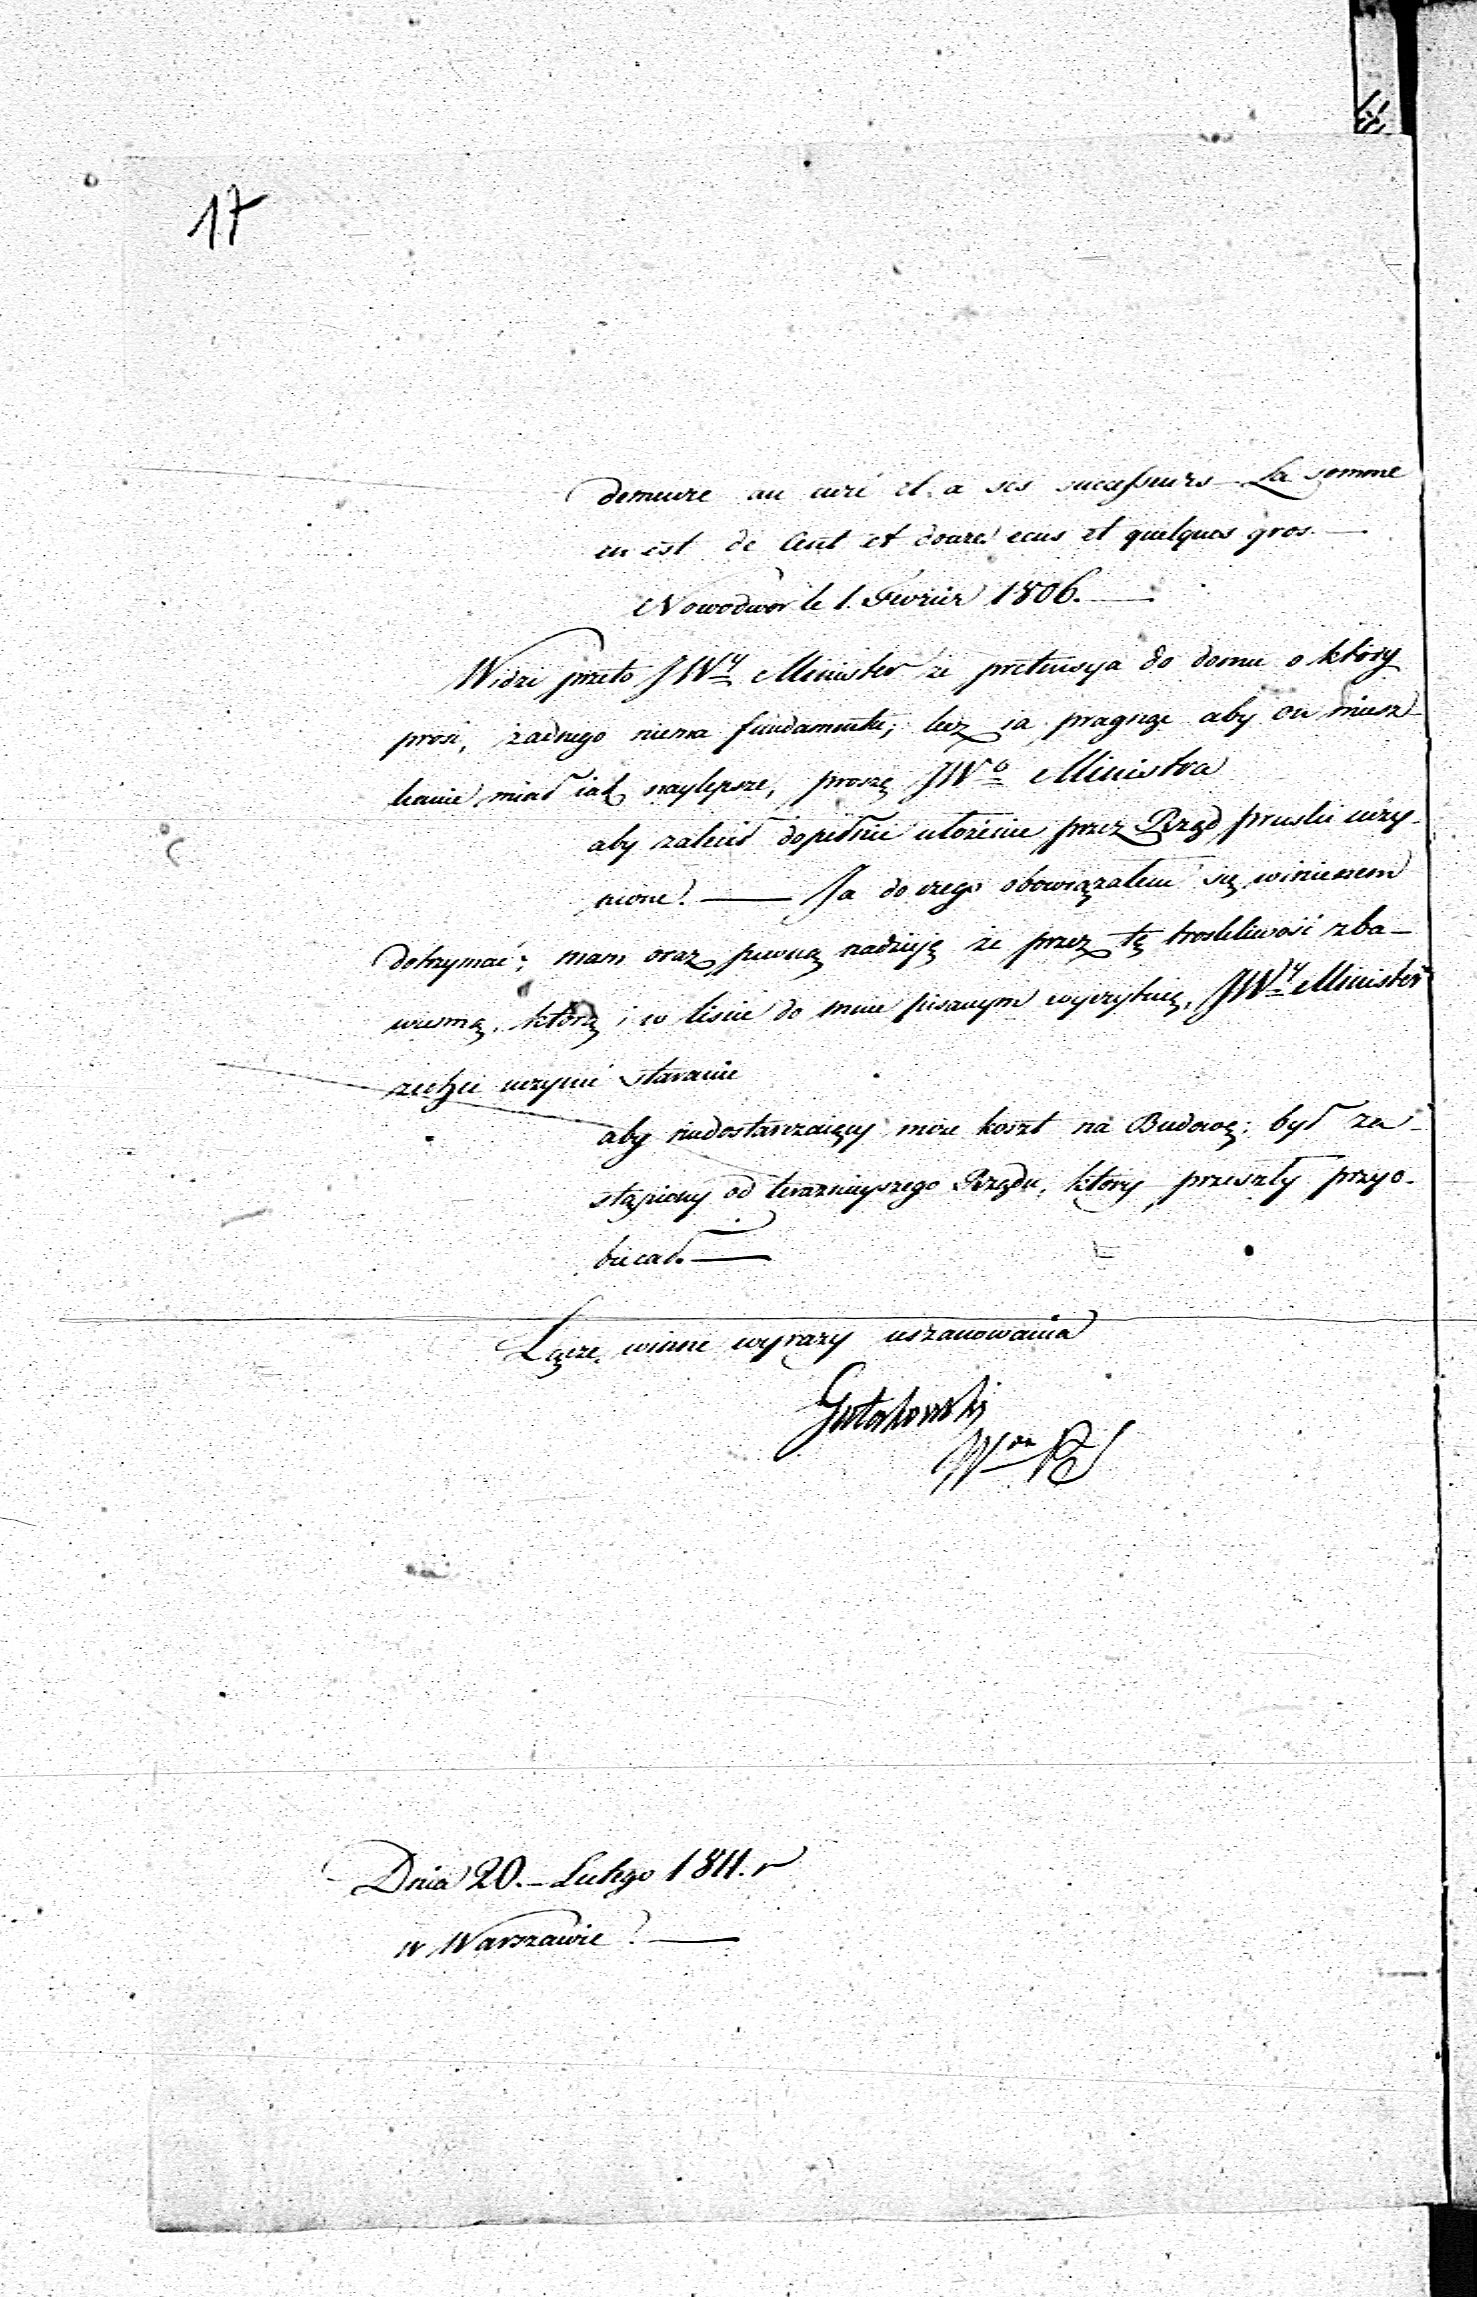 17
demeure au curé et a ses successeurs La somme
en est de Cent et douze ecus et quelques gros.—
Nowodwor le 1. Fevrier 1806.—
Widzi przeto JWy Minister że pretensya do domu o który
prosi, żadnego niema fundamentu; lecz ia pragnąc aby on miesz-
kanie miał iak naylepsze, proszę JWo Ministra
aby zalecił dopełnić ułożenie przez Rząd pruski uczy-
nione. — Ja do czego obowiązałem się, winienem
dotrzymać; mam oraz pewną nadzieję że przez tę troskliwość zba-
wienną, którą i w liście do mnie pisanym wyczytuię, JWy Minister
zechce uczynić staranie
aby niedostarczaiący moy koszt na Budowę; był za-
stąpiony od teraznieyszego Rządu, który przeszły przyo-
biecał. —
Łączę winne wyrazy uszanowania
Gutakowski
Dnia 20. – Lutego 1811. r
w Warszawie. —